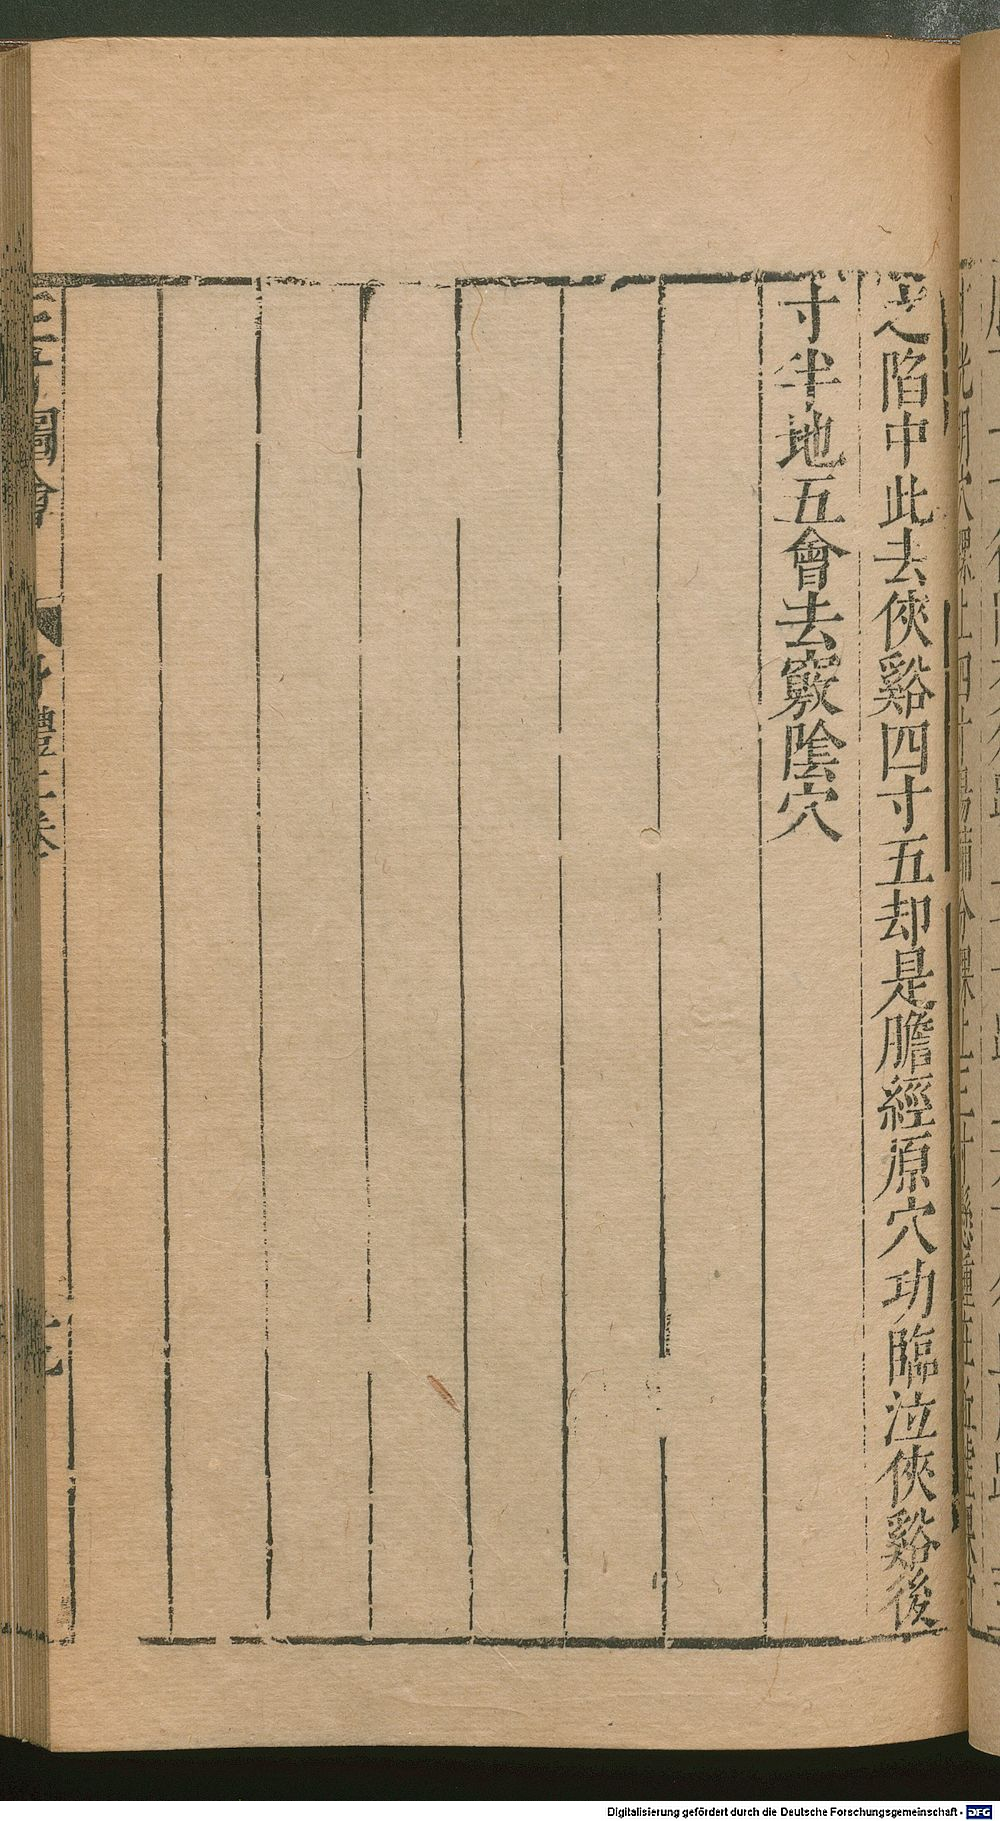 之陷中此去俠谿四寸五却是膽經原穴功臨泣俠谿後
寸半地五會去竅陰穴
三才圖會
身體二卷
Digitalisierung gefördert durch die Deutsche Forschungsgemeinschaft - DFG